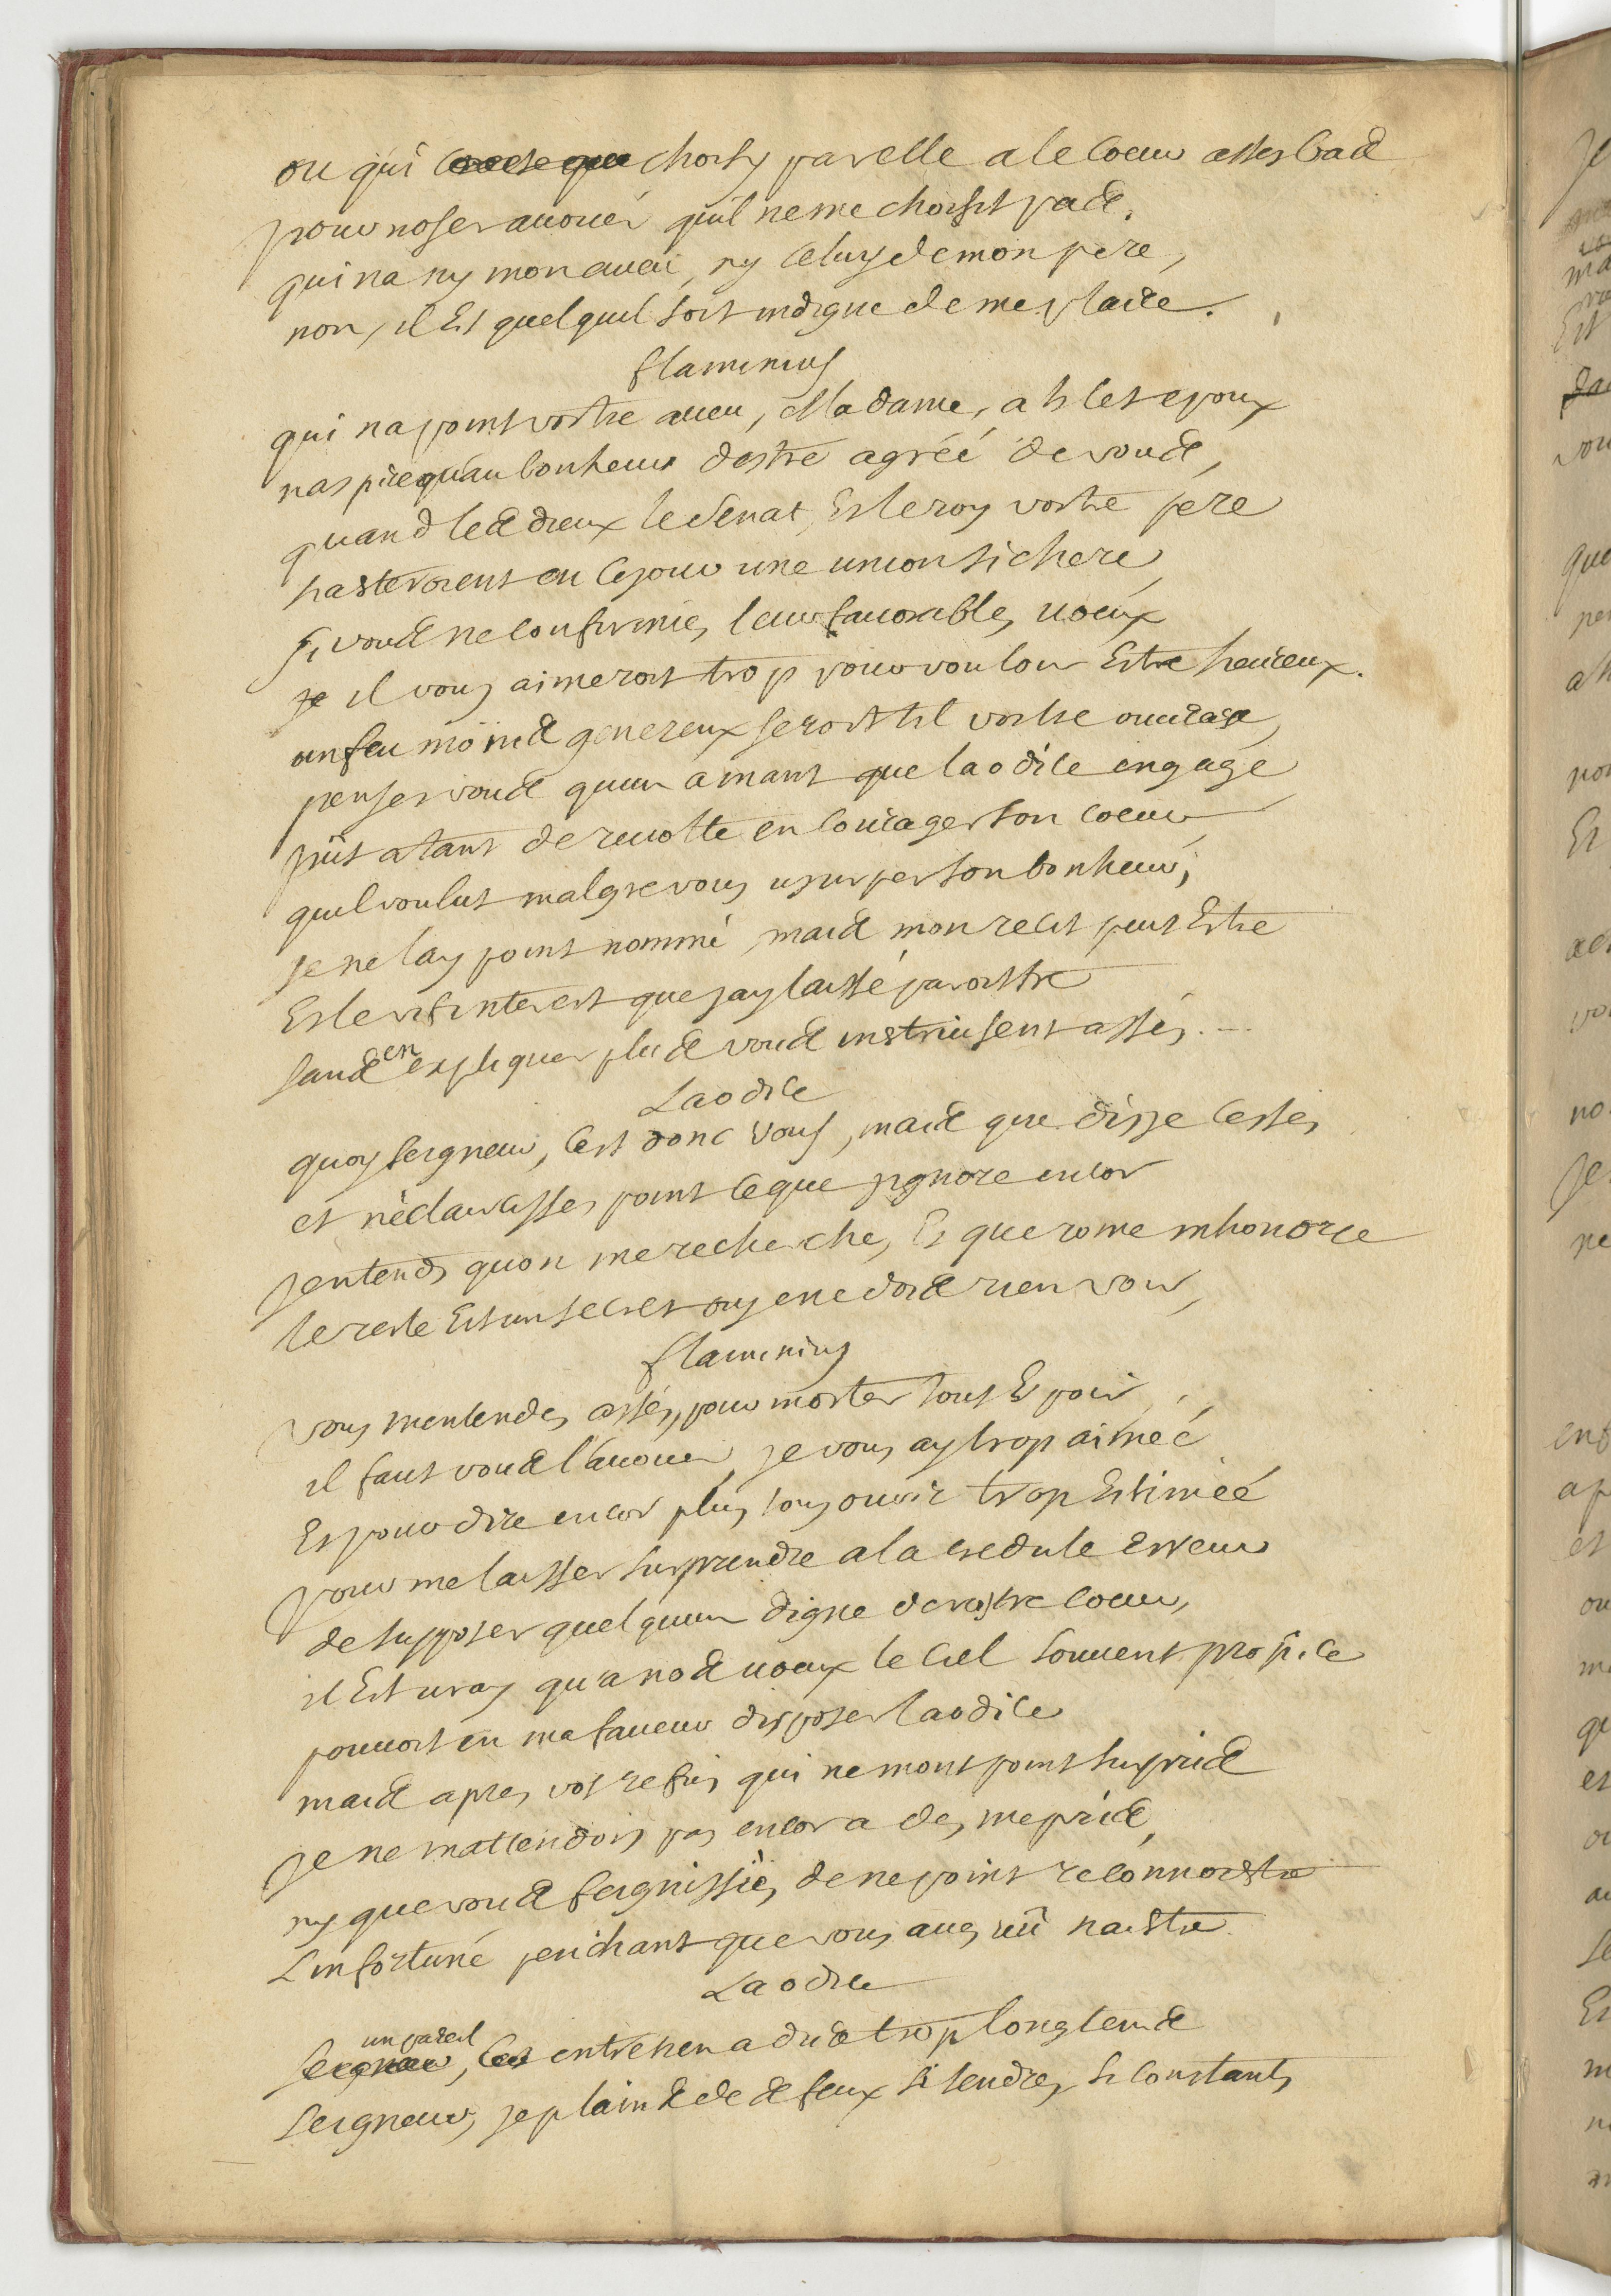 ou qui choisy par elle a le coeur asses bas
pour noser auouer quil ne me choisit pas,
qui na ny mon aueu, ny celuy de mon pere,
non, il Est quel quil soit indigne de me plaire.
flaminius
qui na point vostre aueu, Madame, ah cet epoux
naspire qu'au bonheur d'estre agréé de vous,
quand les dieux le Senat, Et le roy vostre pere
hasteroient en ce jour une union si chere,
si vous ne confirmiez leurs fauorables uoeux
il vous aimeroit trop pour vouloir Estre heureux.
un feu moins genereux seroit til vostre ouurage,
penses vous quun amant que laodice engage
pût a tant de reuolte encourager son coeur
quil voulut malgre vous usurper son bonheur,
je ne lay point nommé, mais mon recit peut Estre
Et le vif interest que jay laissé paroistre
sans en expliquer plus vous instruisent asses ...
Laodice
quoy seigneur, cest donc vous, mais que disje cesses
et n'éclaircisses point ce que jignore encor
jentends quon me recherche, Et que rome mhonore
le reste Est un secret ou je ne dois rien voir,
flaminius
vous mentendes asses, pour moster tout Espoir,
il faut vous l'auouer, je vous ay trop aimée
Et pour dire encor plus, toujours trop Estimée
pour me laisser surprendre a la credule erreur
de supposer quelquun digne de vostre coeur,
il Est uray qu'a nos uoeux le ciel souuent propice
pouuoit en ma faueur disposer laodice
mais apres vos refus qui ne mont point surpris
je ne mattendois pas encor a des mepris,
ny que vous feignissiés de ne point reconnoistre
Linfortuné penchant que vous aués uû naistre
Laodice
un pareil
Seigneur, entretien a duré trop longtems
Seigneur, je plains des feux si tendres si constants